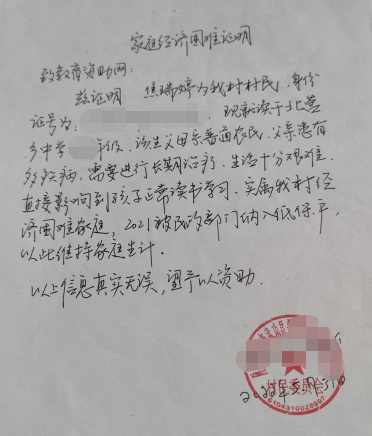 家庭经济困难证明
致教育资助网：
兹证明 焦瑞婷为我村村民，身份
证号为： 现就读于北营
乡中学 年级，该生父母系普通农民，父亲患有
多疾病，需要进行长期治疗，生活十分艰难，
直接影响到孩子正常读书学习，实属我村经
济困难家庭，2021被民政部门纳入低保户，
以此维持家庭生计．
以上信息真实无误，望予以资助．
村民委员会
6104310028997